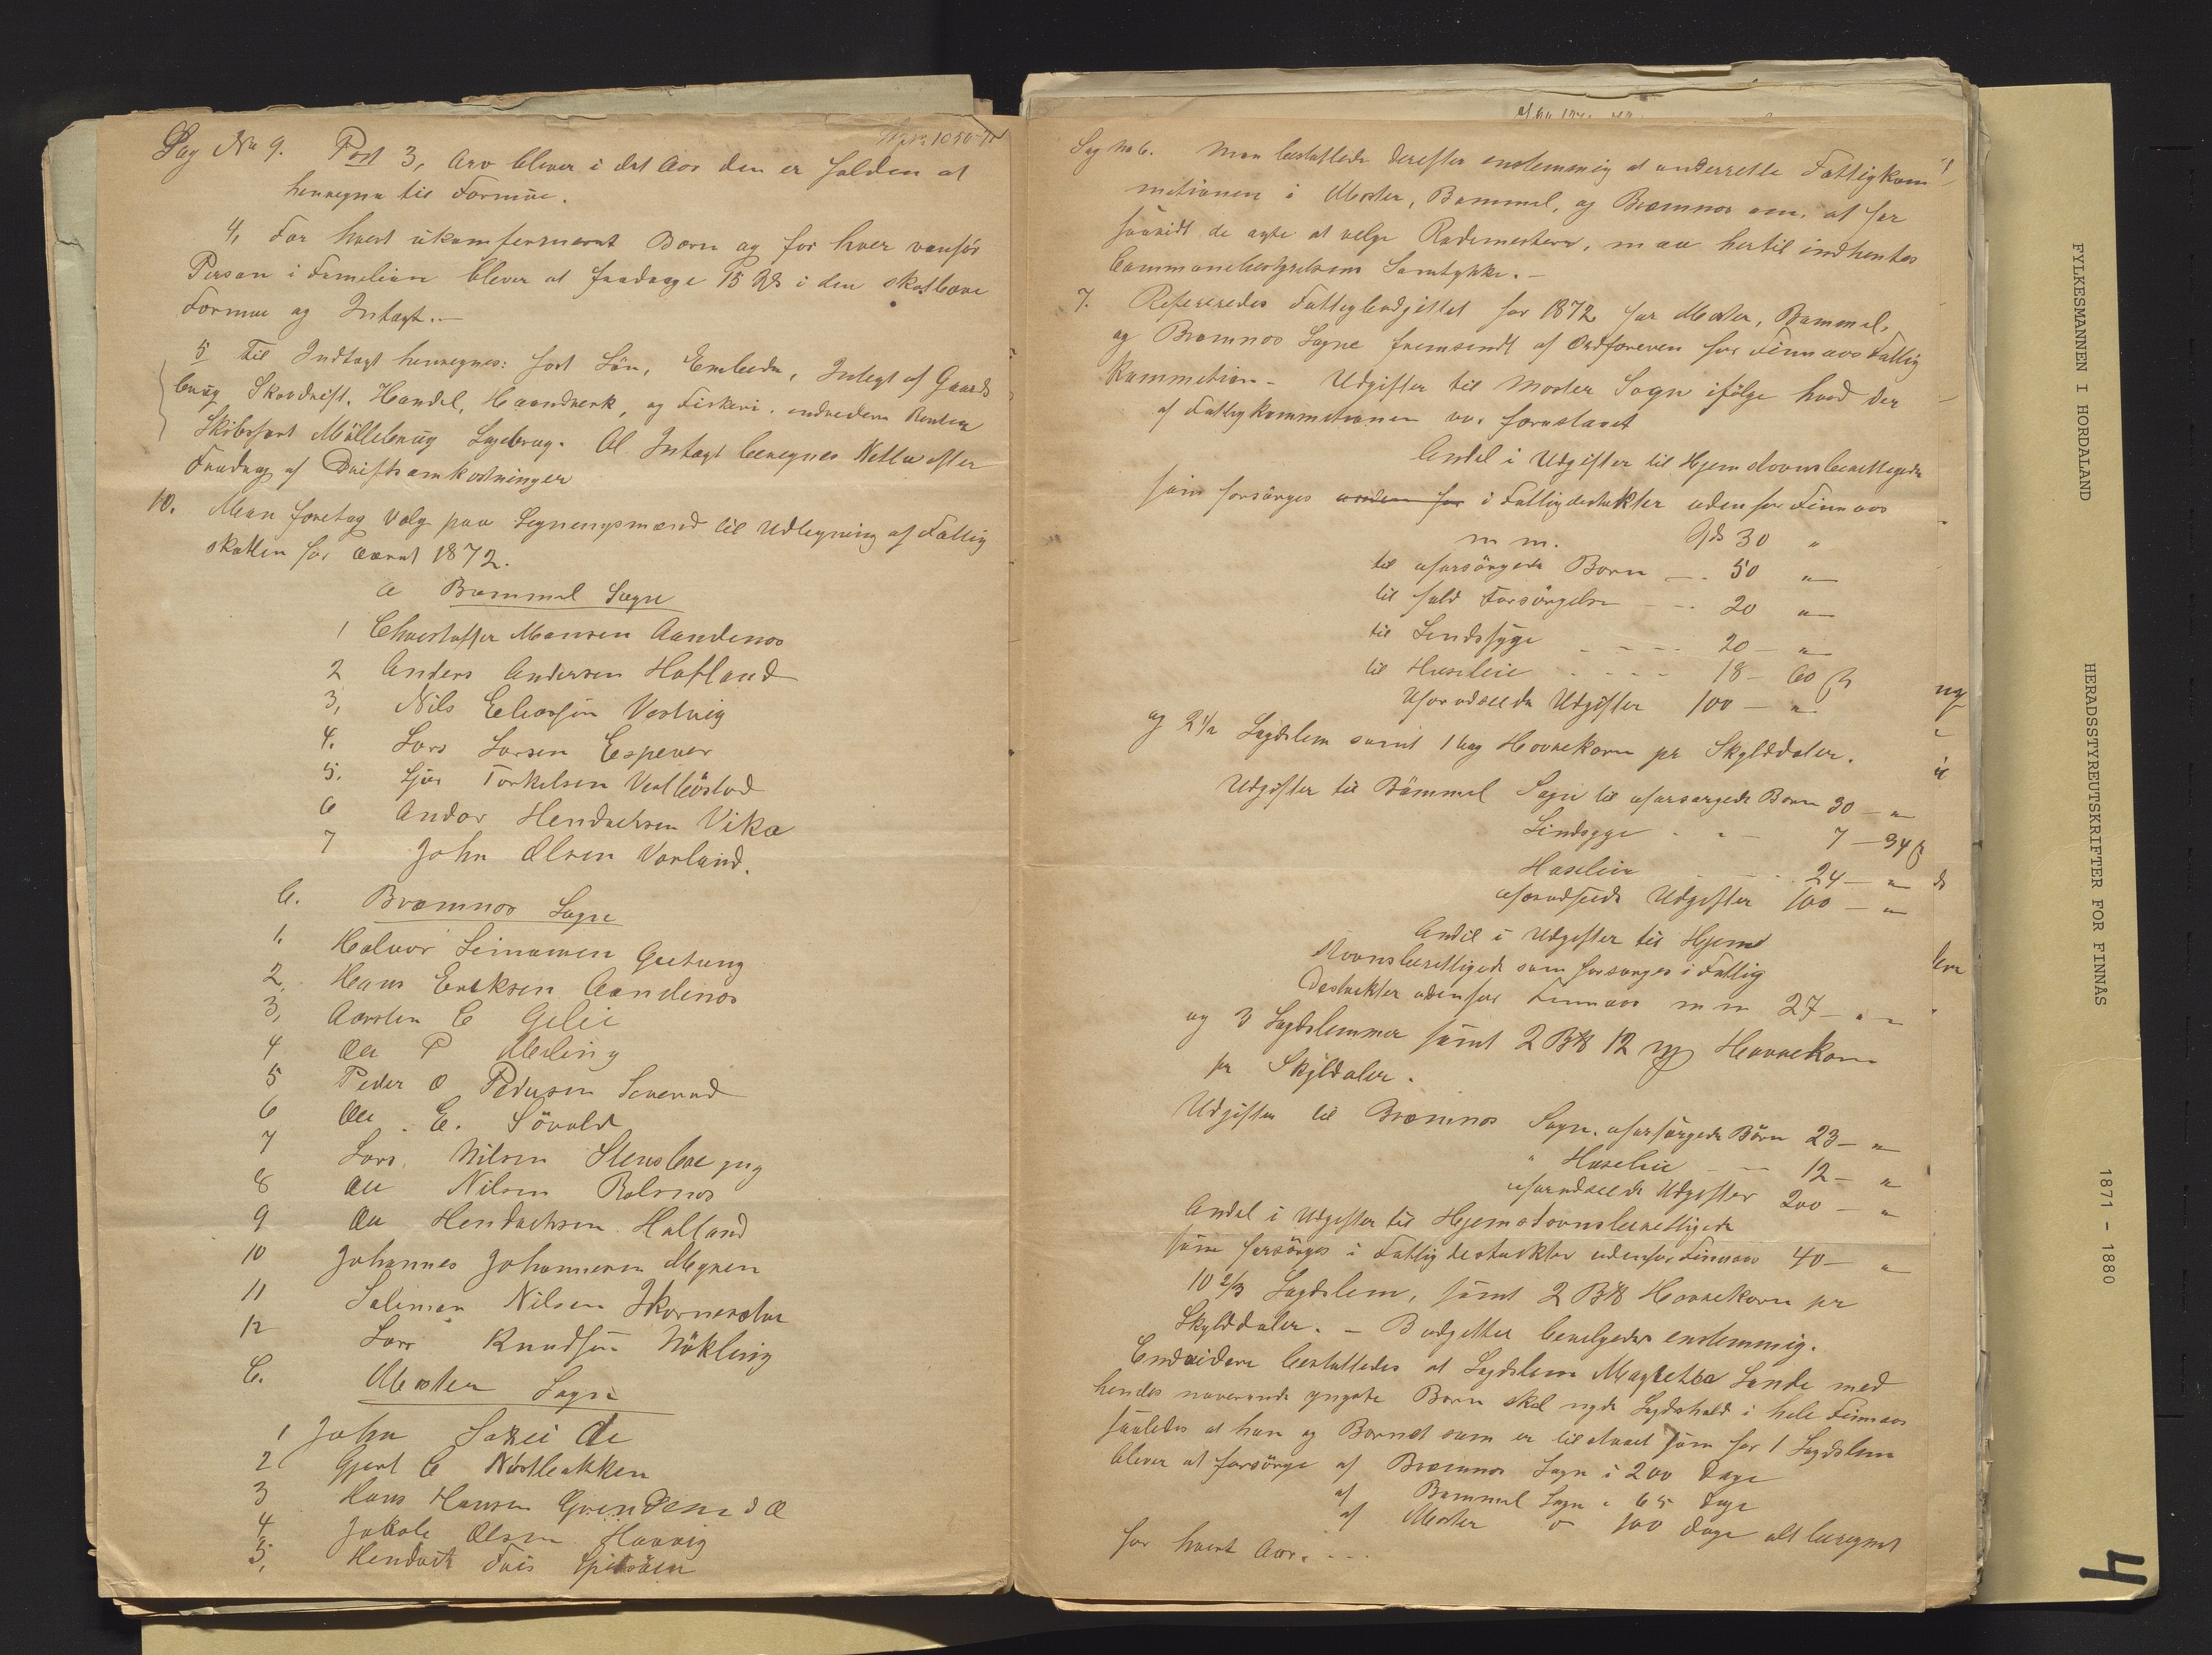 Sag No 9. Post 3, Arv bliver i det Aar den er falden at
henregne til Formue.
4, For hvert ukomfermeret Barn og for hver vanför
Person i Familien bliver at fradrage 15 Spd i den skatbare
Formue og Intægt.—
5 Til Indtægt henregnes: fast Lön, Embede, Intægt af Gaards
brug Skovdrift, Handel, Haandverk, og Fiskeri. endvidere Renten
Skibsfart Möllebrug Sagbrug. Al Intægt beregnes Netto efter
Fradrag af Driftsomkostninger
10. Man foretog Valg paa Ligningsmænd til Udligning af Fattig
skatten for Aaret 1872.
a Bømmel Sogn
1 Christoffer Monsen Aandenos
2 Anders Andersen Hofland
3, Nils Eliassön Vestvig
4. Lars Larsen Espever
5. Sjur Torkelsen Vestböstad
6 Andor Hendriksen Vika
7 John Olsen Vorland.
b. Bræmnos Sogn
1. Halvor Seimonsen Gjetung
2. Hans Eriksen Aandenos
3, Aarsten C Gilie
4 Ole P Meling
5 Peder O Pedersen Severud
6 Ole E. Sövold
7 Lars Nilsen Stensberg
8 Ole Nilsen Rolsnos
9 Ole Hendriksen Halland
10 Johannes Johannesen Myren
11 Salimon Nilsen
12 Lars Knudsön Nökling
C. Moster Sogn
1 John
2 Gjert C Nöstbakken
3 Hans Hansen Grinden
4. Jakob Olsen Haavig
5, Hendrik Friis Spidsöen
Sag No 6. Man besluttede derefter enstemmig at underrette Fattigkom
mitionene i Moster, Bømmel, og Bremnos om, at for
saavidt de agte at velge Rodemestere, maa hertil indhentes
Communebestyrelsens Samtykke.—
7. Refereredes Fattigbudgjettet for 1872 for Moster, Bømmel,
og Bremnos Sogne fremsendt af Ordföreren for Finnaas Fattig
Kommetion — Udgifter til Moster Sogn ifölge hvad der
af Fattigkommetionen var foreslaaet
Andel i Udgifter til Hjemstavnsberettigede
som forsörges i Fattigdestrikter uden for Finnaas
m m. Spd 30 "
til uforsörgede Born — 50 "
til fuld Forsörgelse — 20 "
til Sindssyge — 20 — "
til Husleie — 18 — 60 ß
Uforudseede Udgifter 100 — "
og 2 1/2 Lægdslem samt 1 Vog Havrekorn pr Skylddaler.
Udgifter til Bömmel Sogn til uforsorgede Born 30 — "
Sindsyge — 7 — 34 ß
Husleie — 24 — "
uforudseede Udgifter 100 — "
Andel i Udgifter til Hjem
stavnsberettigede som forsorges i Fattig
Destrikter udenfor Finnaas m m 27 — "
og 3 Lægdslemmer samt 2 B℔ 12 Havrekorn
pr Skylddaler.
Udgifter til Bremnos Sogn. uforsörgede Börn 23 — "
" Husleie — 12 — "
uforudseede Udgifter 200 — "
Andel i Udgifter til Hjemstavnsberettigede
som forsörges i Fattigdestrikter udenfor Finnaas 40 — "
10 2/3 Lægdslem, samt 2 B℔ Havrekorn pr
Skylddaler. — Budgettet bevilgedes enstemmig.
Endvidere besluttedes at Lægdslem Magretha Lande med
hendes naverende yngste Barn skal nyde Lægdshold i hele Finnaas
saaledes at hun og Barnet som er tilstaaet som for 1 Lægdslem
bliver at forsörge af Bremnos Sogn i 200 Dage
af Bømmel Sogn i 65 Dage
af Moster " 100 Dage alt beregnet
for hvert Aar. —
FYLKESMANNEN I HORDALAND
HERADSSTYREUTSKRIFTER FOR FINNÅS
1871 - 1880
4